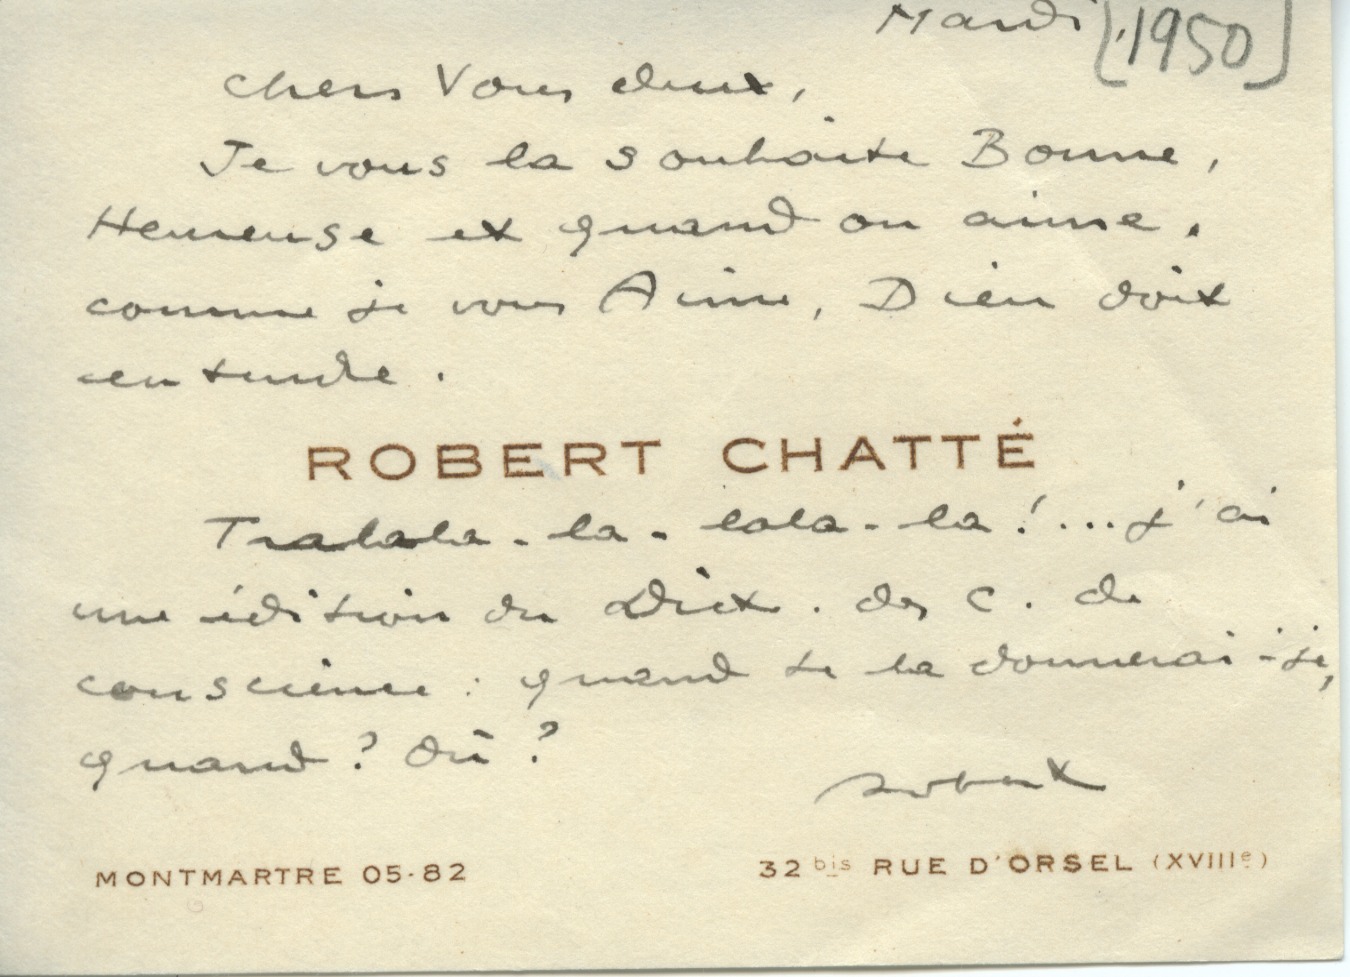 Mardi [1950]
Chers Vous deux,
Je vous la souhaite Bonne,
Heureuse et quand on aime,
comme je vous Aime, Dieu doit
entendre.
ROBERT CHATTÉ
Tralala-la-lala-la!...j'ai
une édition du Dict. des C. de
conscience : quand te la donnerai-je,
quand ? Où ?
Robert
MONTMARTRE 05-82
32 bis RUE D'ORSEL (XVIIIe)